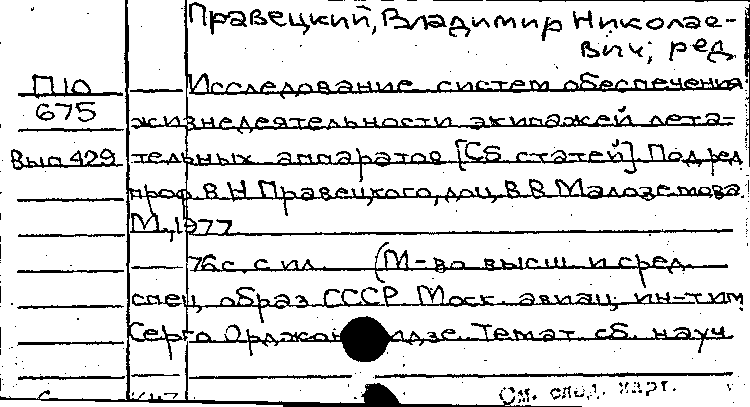 Правецкий, Владимир Николае-
вич, ред
П10 Исследование систем обеспечения
675 жизнедеятельности экипажей лета-
Вып 429 тельных аппаратов [Сб статей]. Под ред
проф В. Н Правецкого, доц. В. В Малоземова.
М., 1977
76 с. с ил (М-во высш и сред
спец. образ СССР Моск. авиац. ин-т им
Серго Орджон идзе. Темат сб. науч
См. след. карт.